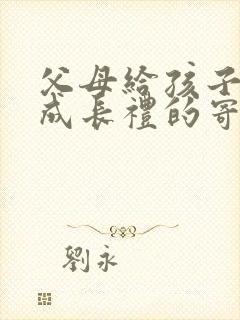 父母給孩子
成長禮的寄
劉永